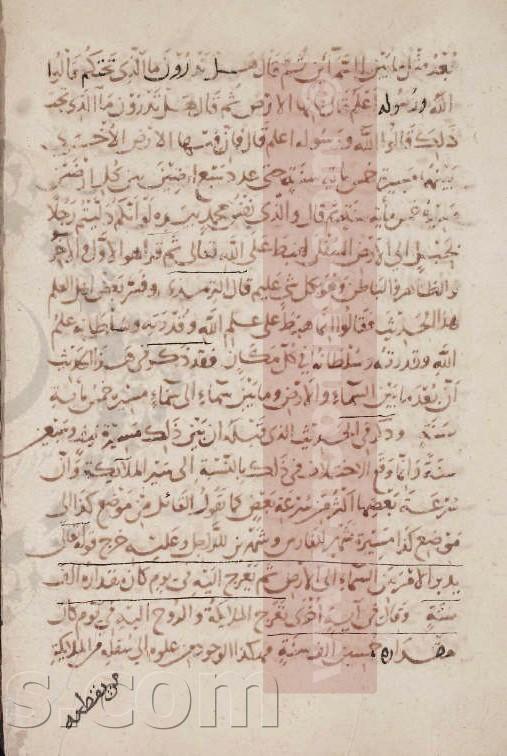 فعد مثل ما بين السماءين ثم قال هل تدرون ما الذي تحتكم قالوا
الله ورسوله اعلم قال انها الارض ثم قال هل تدرون ما الذي تحت
ذلك قالوا الله ورسوله اعلم قال فان تحتها الارض الاخرى
بينهما مسيرة خمس ماية سنة حتى عدد سبع ارضين بين كل ارضين
مسيرة خمس ماية سنة ثم قال والذي نفس محمد بيده لو انكم دليتم رجلا
بحبل الى الارض السفلى لهبط على الله تعالى ثم قرا هو الاول والاخر
والظاهر والباطن وهو بكل شي عليم قال الترمذي وفسر بعض اهل العلم
هذا الحديث فقالوا انما هبط على علم الله وقدرته وسلطانه علم
الله وقدرته وسلطانه في كل مكان فقد ذكر في هذا الحديث
ان بعد ما بين السماء والارض وما بين سماء الى سماء مسير خمس ماية
سنة وذكر في الحديث الذي قبله ان بين ذلك مسيرة نيف وسبعين
سنة وانما وقع الاختلاف في ذلك بالنسبة الى سير الملائكة وان
سرعة بعضها اكثر من سرعة بعض كما يقول القائل من موضع كذا الى
موضع كذا مسيرة شهر للفارس وشهرين للراجل وعليه خرج قوله تعالى
يدبر الامر من السماء الى الارض ثم يعرج اليه في يوم كان مقداره الف
سنة وقال في اية اخرى تعرج الملايكة والروح اليه في يوم كان
مقداره خمسين الف سنة فهكذا الوجود من علوه الى سفله من الملايكة
s.com